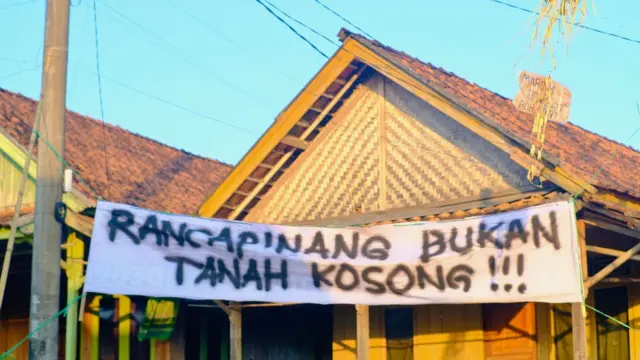 RANCAPINANG BUKAN
TANAH KOSONG !!!